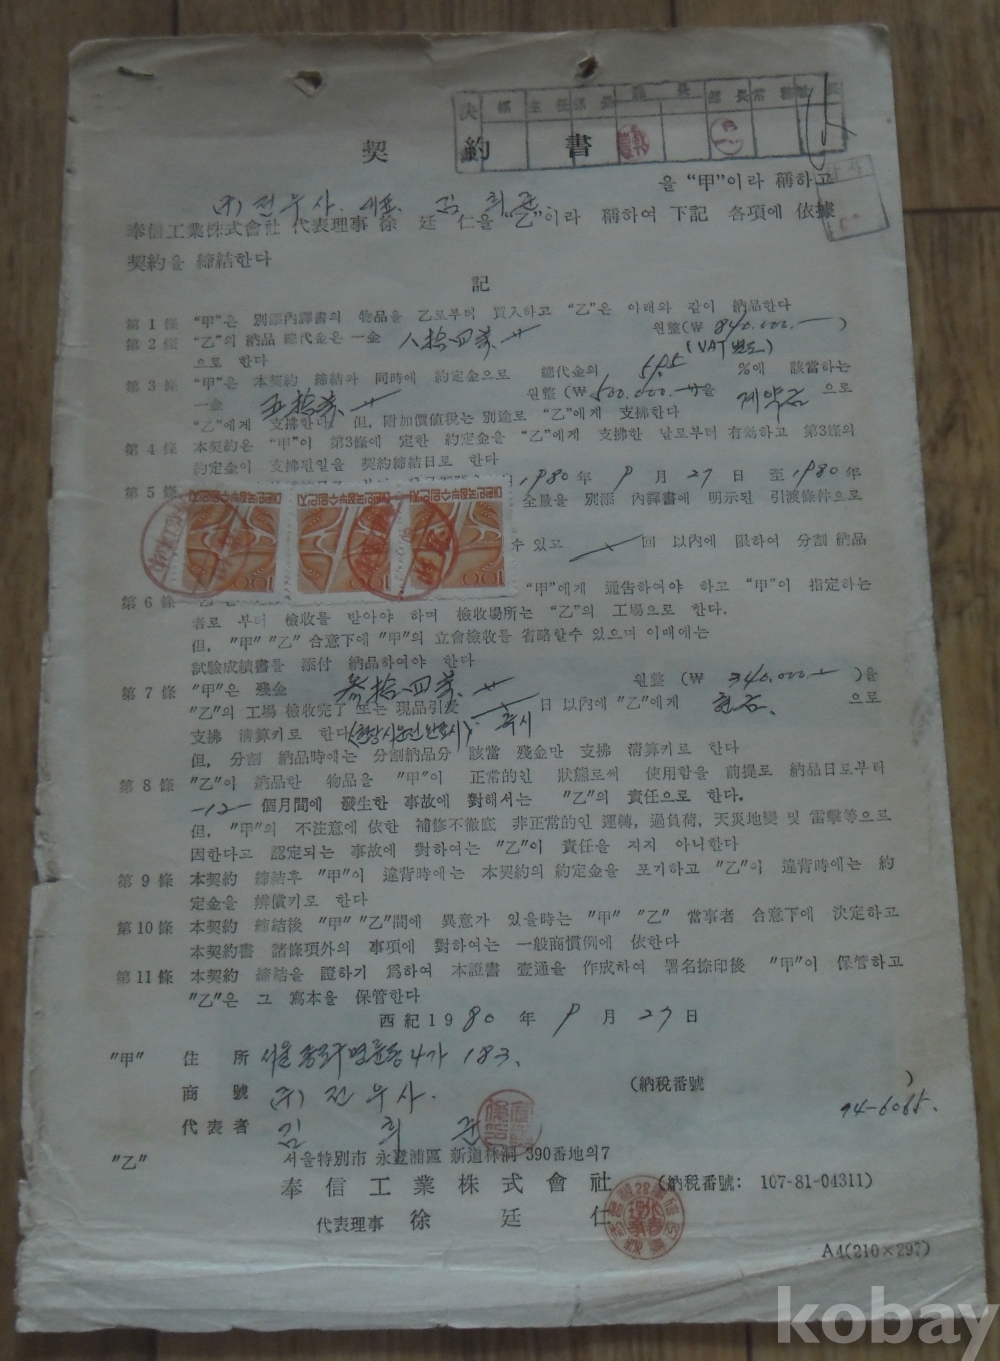 決 課 主任 課長 部長 常務 社長
契約書
을 "甲"이라 稱하고
(주) 전우사. 대표 김 희
奉信工業株式會社 代表理事 徐廷仁을 "乙"이라 稱하여 下記 各項에 依據
契約을 締結한다
記
第1條 "甲"은 別添內譯書의 物品을 乙로부터 買入하고 "乙"은 아래와 같이 納品한다
第2條 "乙"의 納品 總代金은 一金 八拾四萬 원整(₩ 840.000.—)
으로 한다 (VAT 별도)
第3條 "甲"은 本契約 締結과 同時에 約定金으로 總代金의 59.5 %에 該當하는
一金 五拾萬 원整(₩500.000.—)을 계약금 으로
"乙"에게 支拂한다. 但, 附加價値稅는 別途로 "乙"에게 支拂한다
第4條 本契約은 "甲"이 第3條에 定한 約定金을 "乙"에게 支拂한 날로부터 有効하고 第3條의
約定金이 支拂된일을 契約締結日로 한다
第5條 1980年 9月 27日 至 1980年
全量을 別添 內譯書에 明示된 引渡條件으로
수 있고 回 以內에 限하여 分割 納品
第6條 "乙"은 "甲"에게 通告하여야 하고 "甲"이 指定하는
者로 부터 檢收를 받아야 하며 檢收場所는 "乙"의 工場으로 한다.
但, "甲" "乙" 合意下에 "甲"의 立會檢收를 省略할수 있으며 이때에는
試驗成績書를 添付 納品하여야 한다
第7條 "甲"은 殘金 參拾四萬 원整 (₩ 340.000.—)을
"乙"의 工場 檢收完了 또는 現品引渡 日 以內에 "乙"에게 현금. 으로
支拂 淸算키로 한다 (현장시운전 완료시) 즉시
但, 分割 納品時에는 分割納品分 該當 殘金만 支拂 淸算키로 한다
第8條 "乙"이 納品한 物品을 "甲"이 正常的인 狀態로써 使用함을 前提로 納品日로부터
12 個月間에 發生한 事故에 對해서는 "乙"의 責任으로 한다.
但, "甲"의 不注意에 依한 補修不徹底 非正常的인 運轉, 過負荷, 天災地變 및 雷擊等으로
因한다고 認定되는 事故에 對하여는 "乙"이 責任을 지지 아니한다
第9條 本契約 締結후 "甲"이 違背時에는 本契約의 約定金을 포기하고 "乙"이 違背時에는 約
定金을 辨償키로 한다
第10條 本契約 締結後 "甲" "乙"間에 異意가 있을때는 "甲" "乙" 當事者 合意下에 決定하고
本契約書 諸條項外의 事項에 對하여는 一般商慣例에 依한다
第11條 本契約 締結을 證하기 爲하여 本證書 壹通을 作成하여 署名捺印後 "甲"이 保管하고
"乙"은 그 寫本을 保管한다
西紀1980年 9月 27日
"甲" 住所 서울 종로구 명륜동 4가 183.
商號 (주) 전우사. (納稅番號 )
94-6065.
代表者 김 희
"乙" 서울特別市 永登浦區 新道林洞 390番地의7
奉信工業株式會社 (納稅番號: 107-81-04311)
代表理事 徐廷仁
A4(210×297)
대한민국정부수입인지 100
대한민국정부수입인지 100
대한민국정부수입인지 100
kobay